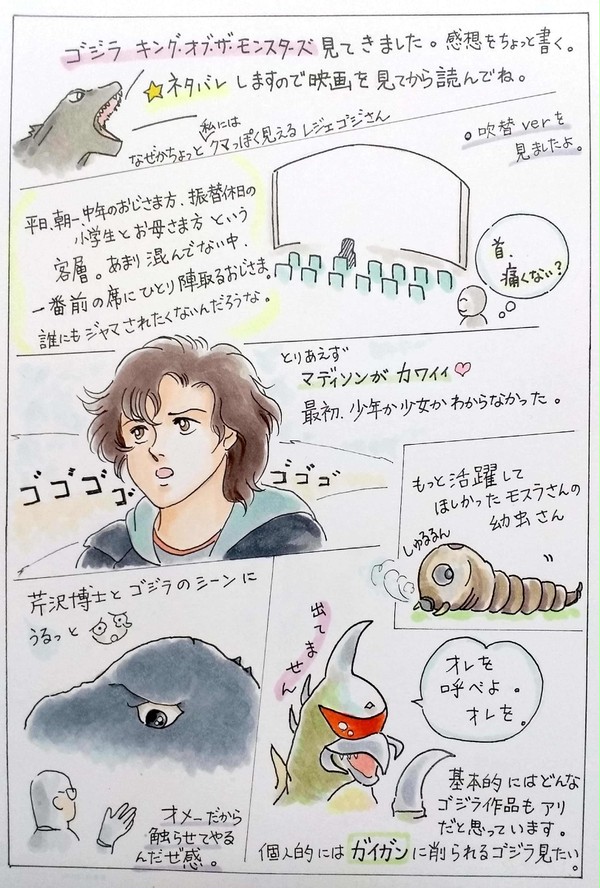 ゴジラ キング・オブ・ザ・モンスターズ 見てきました。感想をちょっと書く。
☆ネタバレしますので映画を見てから読んでね。
なぜかちょっと私にはクマっぽく見えるレジェゴジさん
。吹替verを
見ましたよ。
平日、朝一、中年のおじさま方、振替休日の
小学生とお母さま方という
客層。あまり混んでない中、
一番前の席にひとり陣取るおじさま。
誰にもジャマされたくないんだろうな。
首、
痛くない?
とりあえず
マディソンがカワイイ♡
最初、少年か少女かわからなかった。
ゴゴゴゴ
ゴゴゴ
もっと活躍して
ほしかったモスラさんの
幼虫さん
しゅるるん
芹沢博士とゴジラのシーンに
うるっと
オメーだから
触らせてやる
んだぜ感。
出てません
オレを
呼べよ。
オレを。
基本的にはどんな
ゴジラ作品もアリ
だと思っています。
個人的にはガイガンに削られるゴジラ見たい。